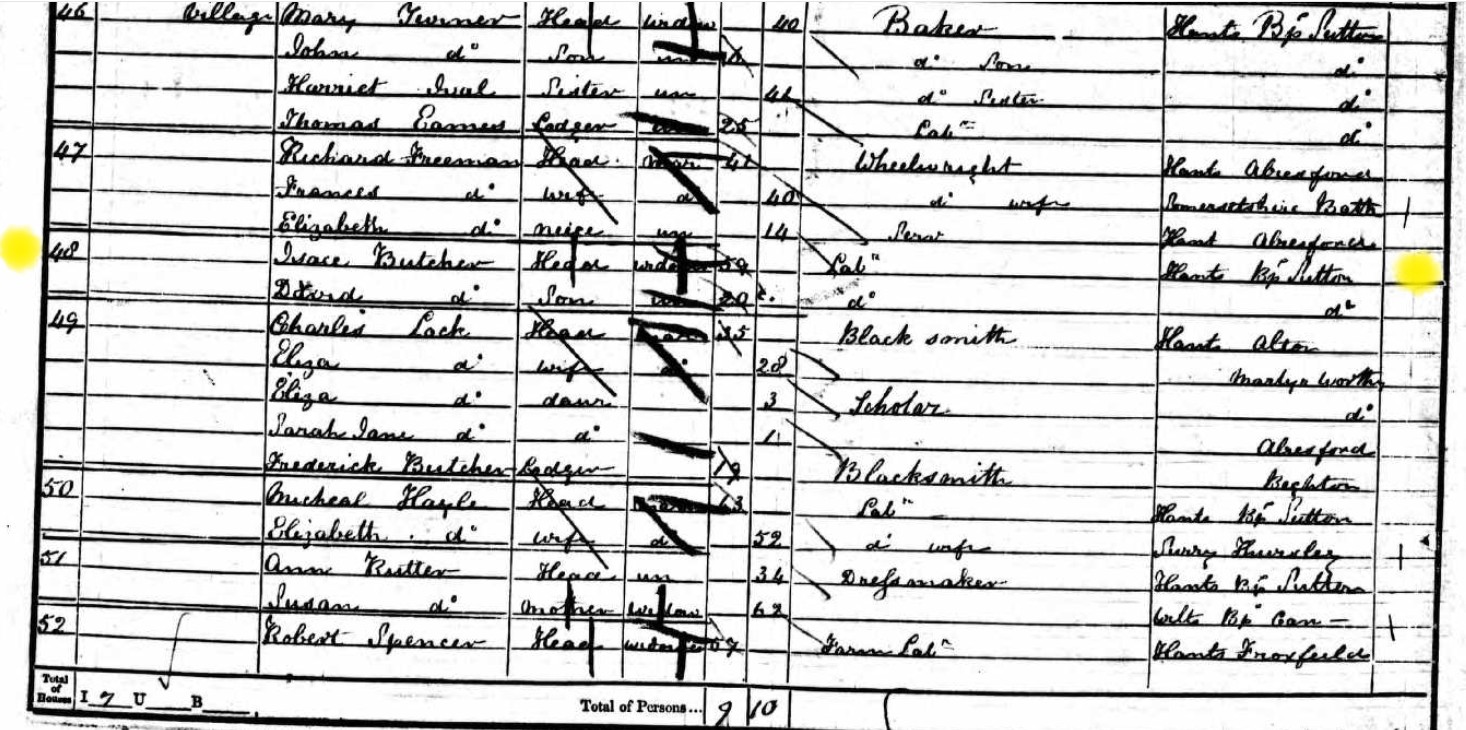 46 Village Mary Turner Head widow 40 Baker Hants Bp Sutton
John do Son un do Son do
Harriet Sister un do Sister do
Thomas Eames Lodger 25 Labr do
47 Richard Freeman Head mar 41 Wheelwright Hants Alresford
Frances do wife d 40 do wife Somersetshire Bath
Elizabeth do neice un 14 Serv Hant Alresford
48 Isace Butcher Head widower 59 Labr Hants Bp Sutton
David do Son 20 do do
49 Charles Lack Head 35 Black smith Hants Alton
Eliza do wife 28 Martyr Worthy
Eliza do daur 3 Scholar do
Sarah Jane do do 1 Alresford
Frederick Butcher Lodger 19 Blacksmith Beighton
50 Micheal Hayle Head 63 Labr Hants Bp Sutton
Elizabeth do wife d 52 do wife Surry Thursley
51 Ann Rutter Head un 34 Dressmaker Hants Bp Sutton
Susan do Mother widow 62 Wilts Bp Can
52 Robert Spencer Head widower 67 Farm Labr Hants Froxfield
Total of Houses I 7 U B Total of Persons... 9 10